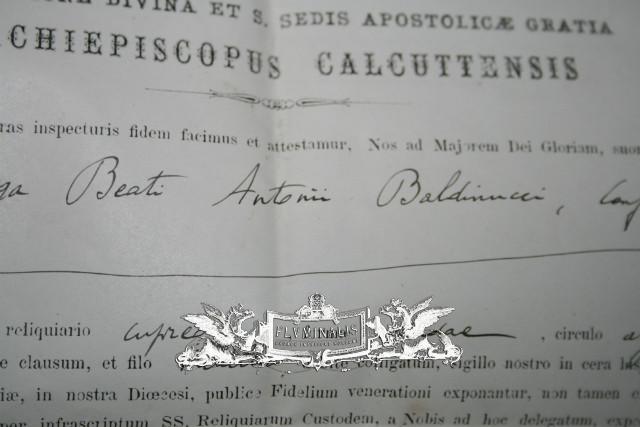 DIVINA ET S. SEDIS APOSTOLICÆ GRATIA
CHIEPISCOPUS CALCUTTENSIS
ras inspecturis fidem facimus et attestamur, Nos ad Majorem Dei Gloriam, suor
ga Beati Antonii Baldinucci, Conf
reliquiario cupre ae, circulo a
e clausum, et filo colligatum, sigillo nostro in cera
FLVMINALIS
iæ, in nostra Diœcesi, publicæ Fidelium venerationi exponantur, non tamen e
per infrascriptum SS. Reliquiarum Custodem, a Nobis ad hoc delegatum, exp